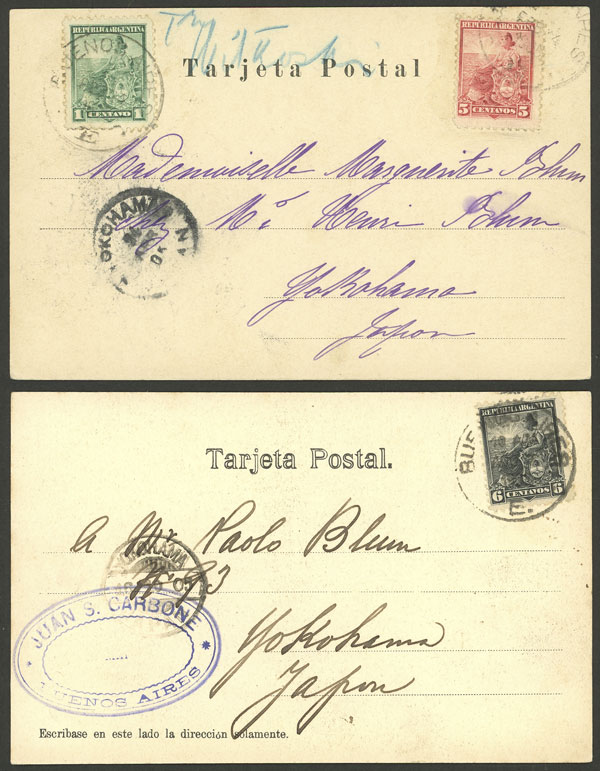 REPUBLICA ARGENTINA
1 CENTAVO 1
BUENOS AIRES
REPUBLICA ARGENTINA
5 CENTAVOS 5
Tarjeta Postal
Mademoiselle Marguerite Blum
chez Mr. Henri Blum
YOKOHAMA
Yokohama
Japon
REPUBLICA ARGENTINA
6 CENTAVOS 6
BUENOS AIRES
Tarjeta Postal.
A Mr Paolo Blum
Nº 93
YOKOHAMA
JUAN S. CARBONE
BUENOS AIRES
Yokohama
Japon
Escribase en este lado la dirección solamente.